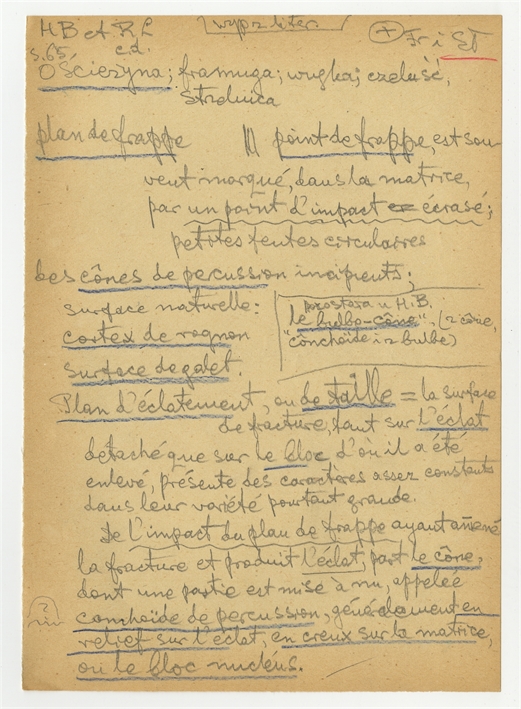 HB et R L wyp z liter. + Fr i ST
s. 65, c.d.
Ościeżyna; framuga; wnęka; czeluść,
strzelnica
plan de frappe || point de frappe, est sou-
vent marqué, dans la matrice,
par un point d'impact écrasé;
petites fentes circulaires
des cônes de percussion incipients;
surface naturelle:
cortex de rognon
surface de galet.
postara u H.B.
le bulbo-cône". (z cône,
"conchoïde i z bulbe)
Plan d'éclatement, ou de taille = la surface
de fracture, tant sur l'éclat
détaché que sur le bloc d'où il a été
enlevé, présente des caractères assez constants
dans leur variété pourtant grande.
De l'impact du plan de frappe ayant amené
la fracture et produit l'éclat, part le cône,
dont une partie est mise à nu, appelée
conchoïde de percussion, généralement en
relief sur l'éclat, en creux sur la matrice,
ou le bloc nucléus.
?